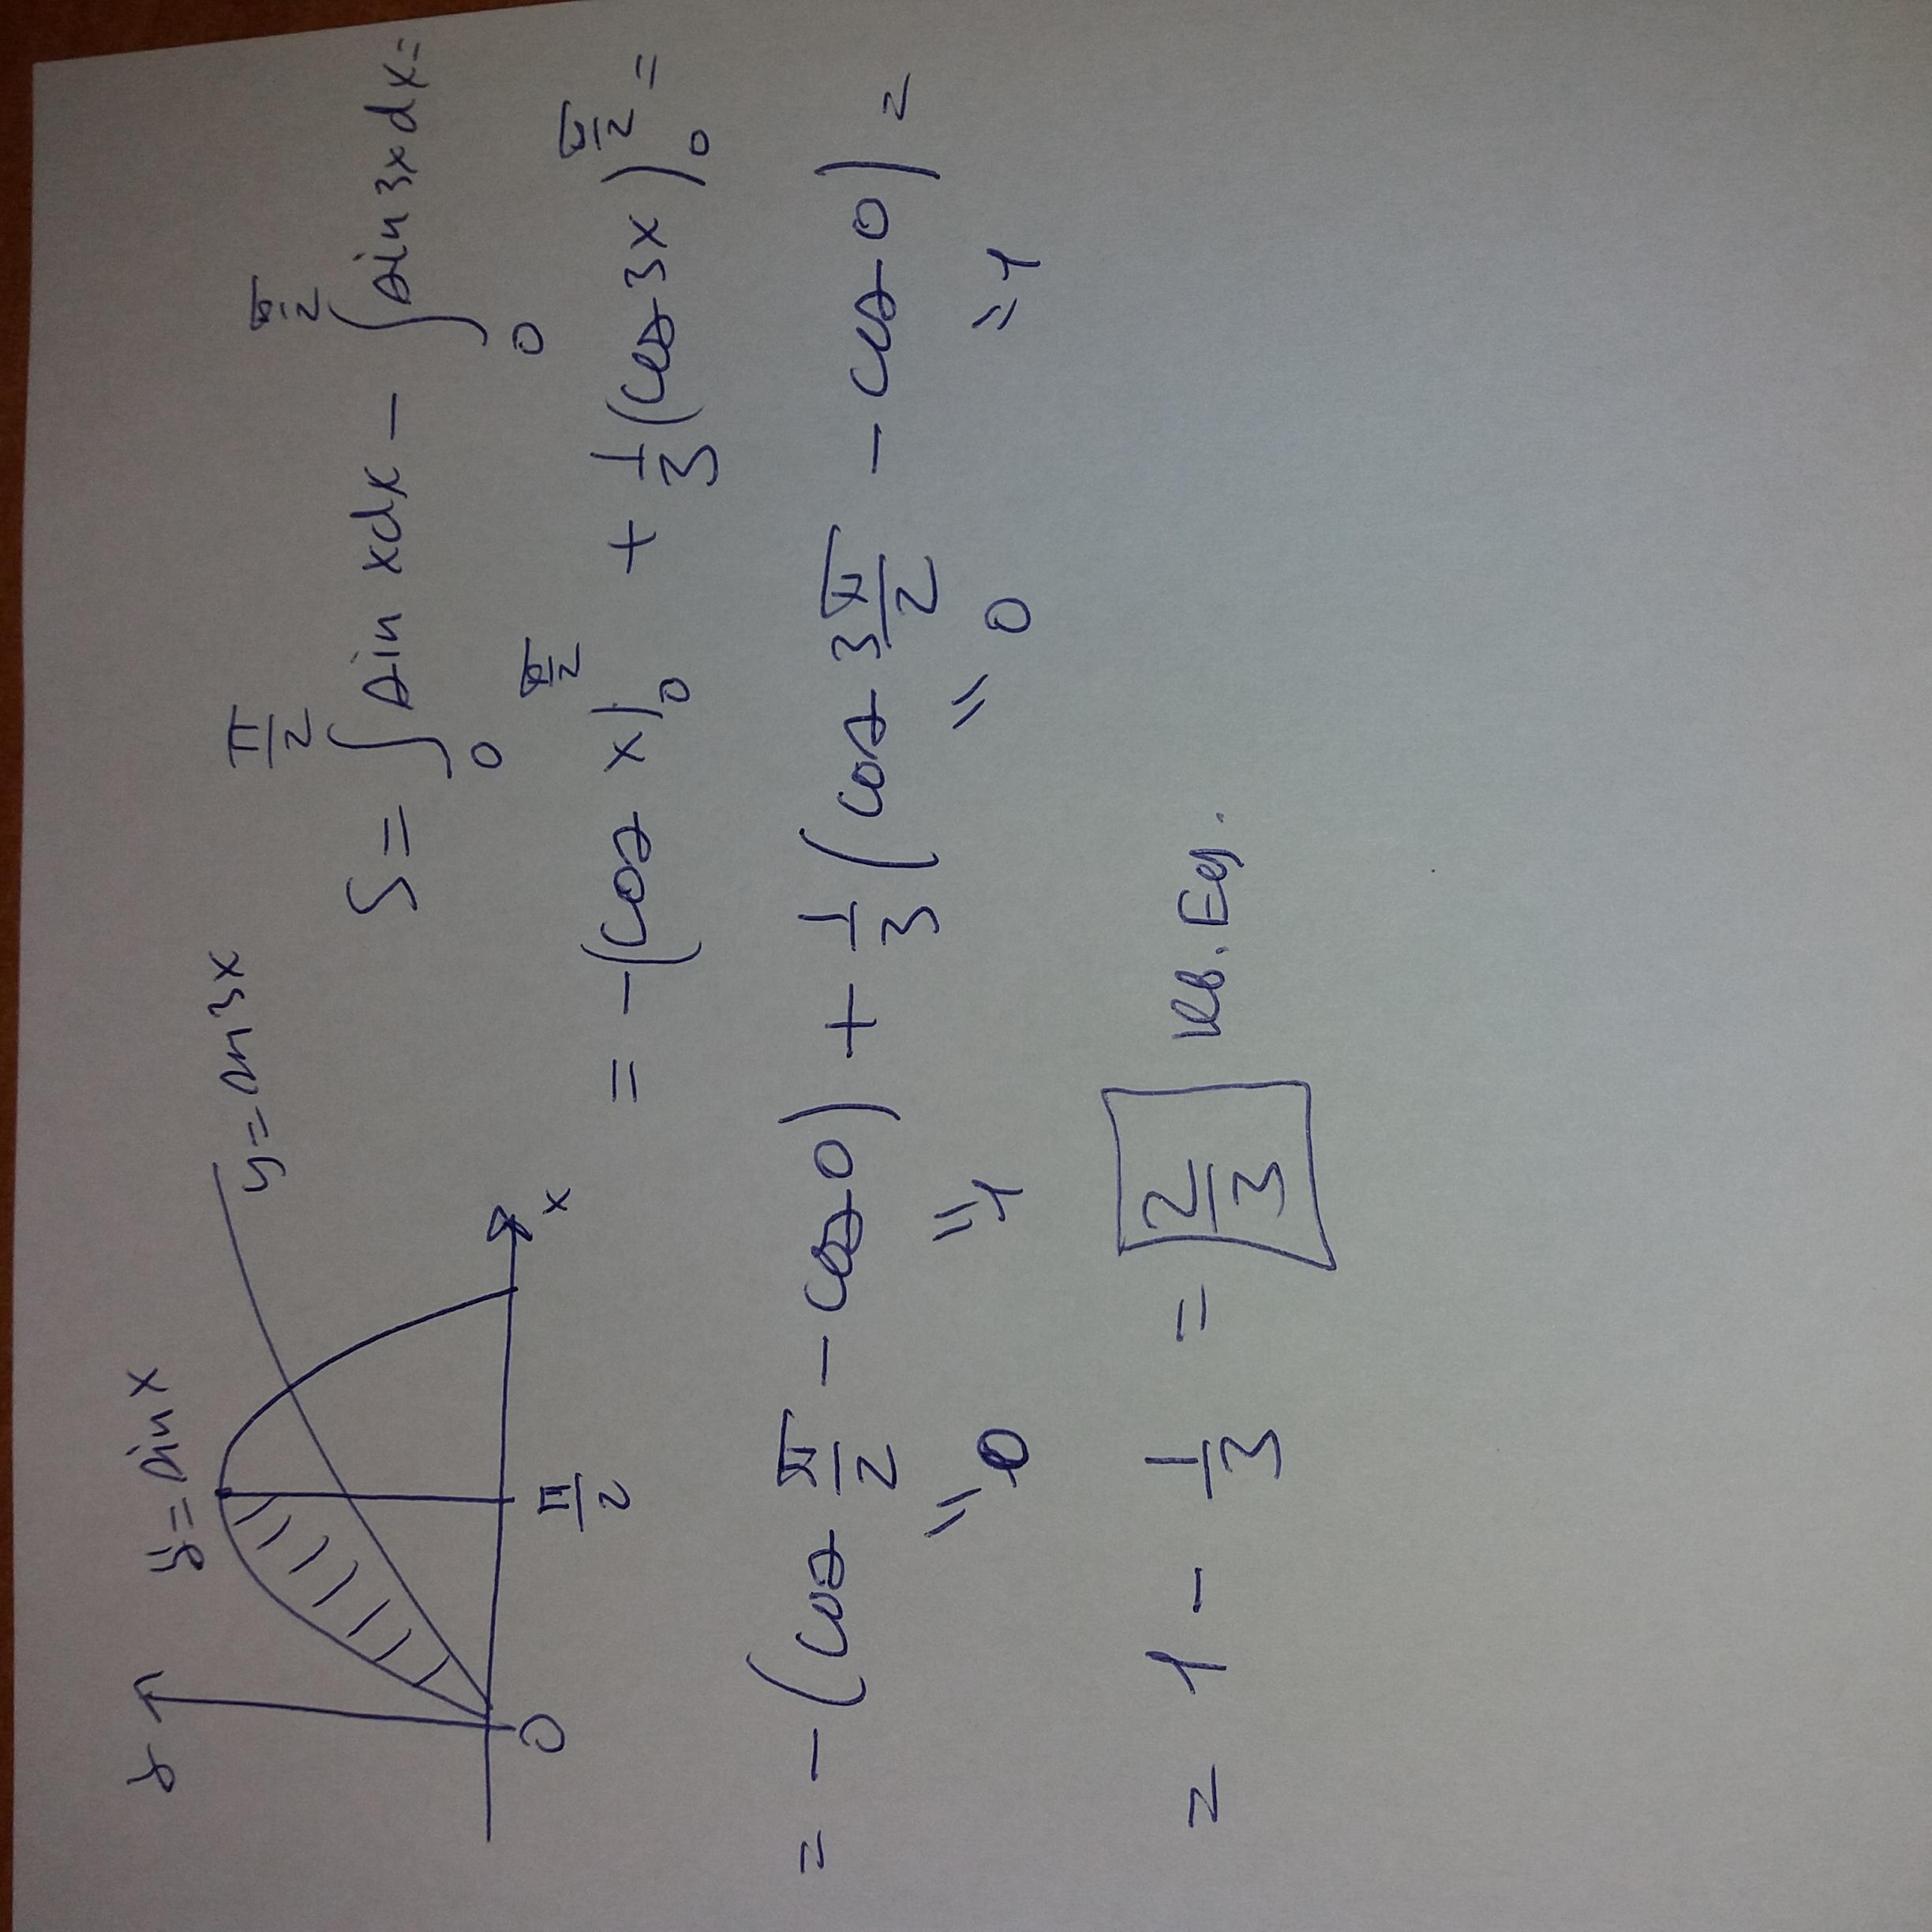 y
y = sin x
y = sin 3x
0
π/2
x
S = ∫₀^(π/2) sin x dx − ∫₀^(π/2) sin 3x dx =
= −(cos x)|₀^(π/2) + 1/3 (cos 3x)₀^(π/2) =
= −(cos π/2 − cos 0) + 1/3 (cos 3π/2 − cos 0) =
"0 "1 "0 "1
= 1 − 1/3 = 2/3 кв. ед.